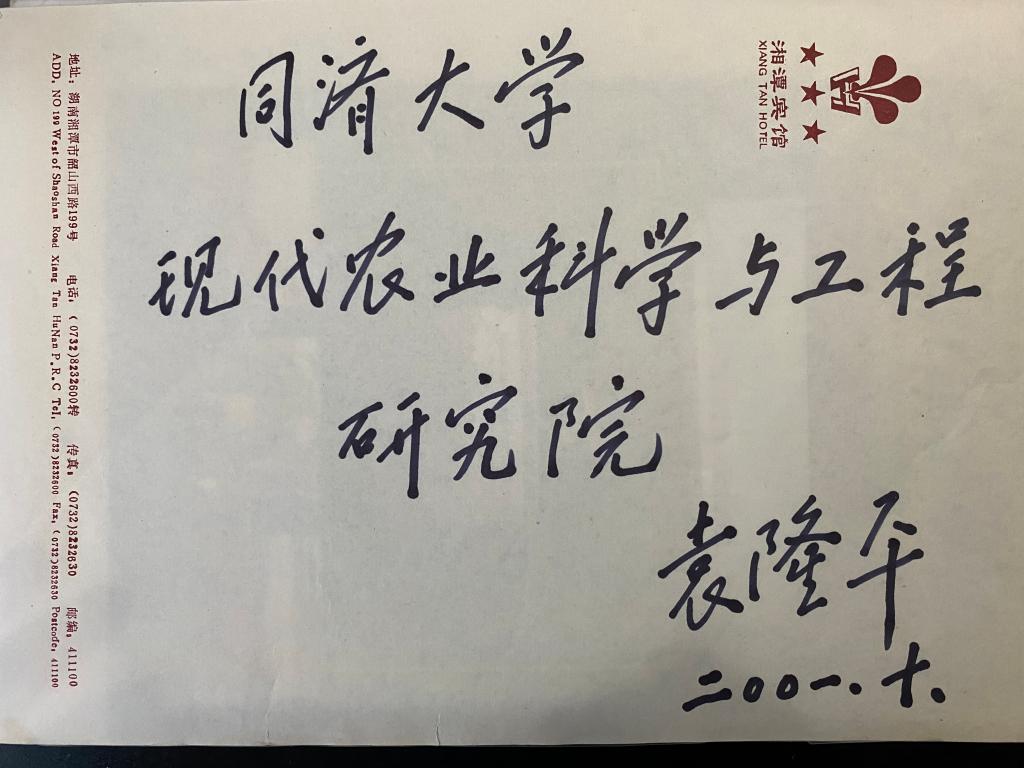 同济大学
现代农业科学与工程
研究院
袁隆平
二〇〇一.十.
湘潭宾馆
XIANG TAN HOTEL
地址：湖南湘潭市韶山西路199号 电话：(0732)8232600转 传真：(0732)8232630 邮编：411100
ADD. NO 199 West of Shaoshan Road Xiang Tan HuNan P.R.C Tel:(0732)8232600 Fax:(0732)8232630 Postcode: 411100